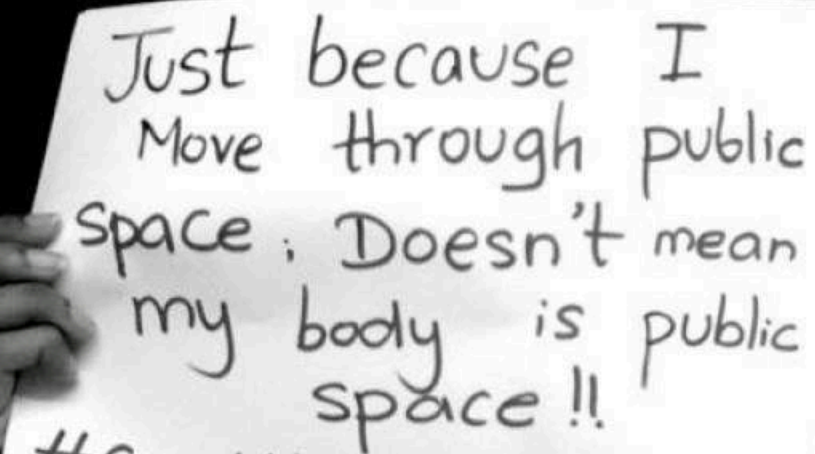 Just because I
Move through public
space ; Doesn't mean
my body is public
space !!